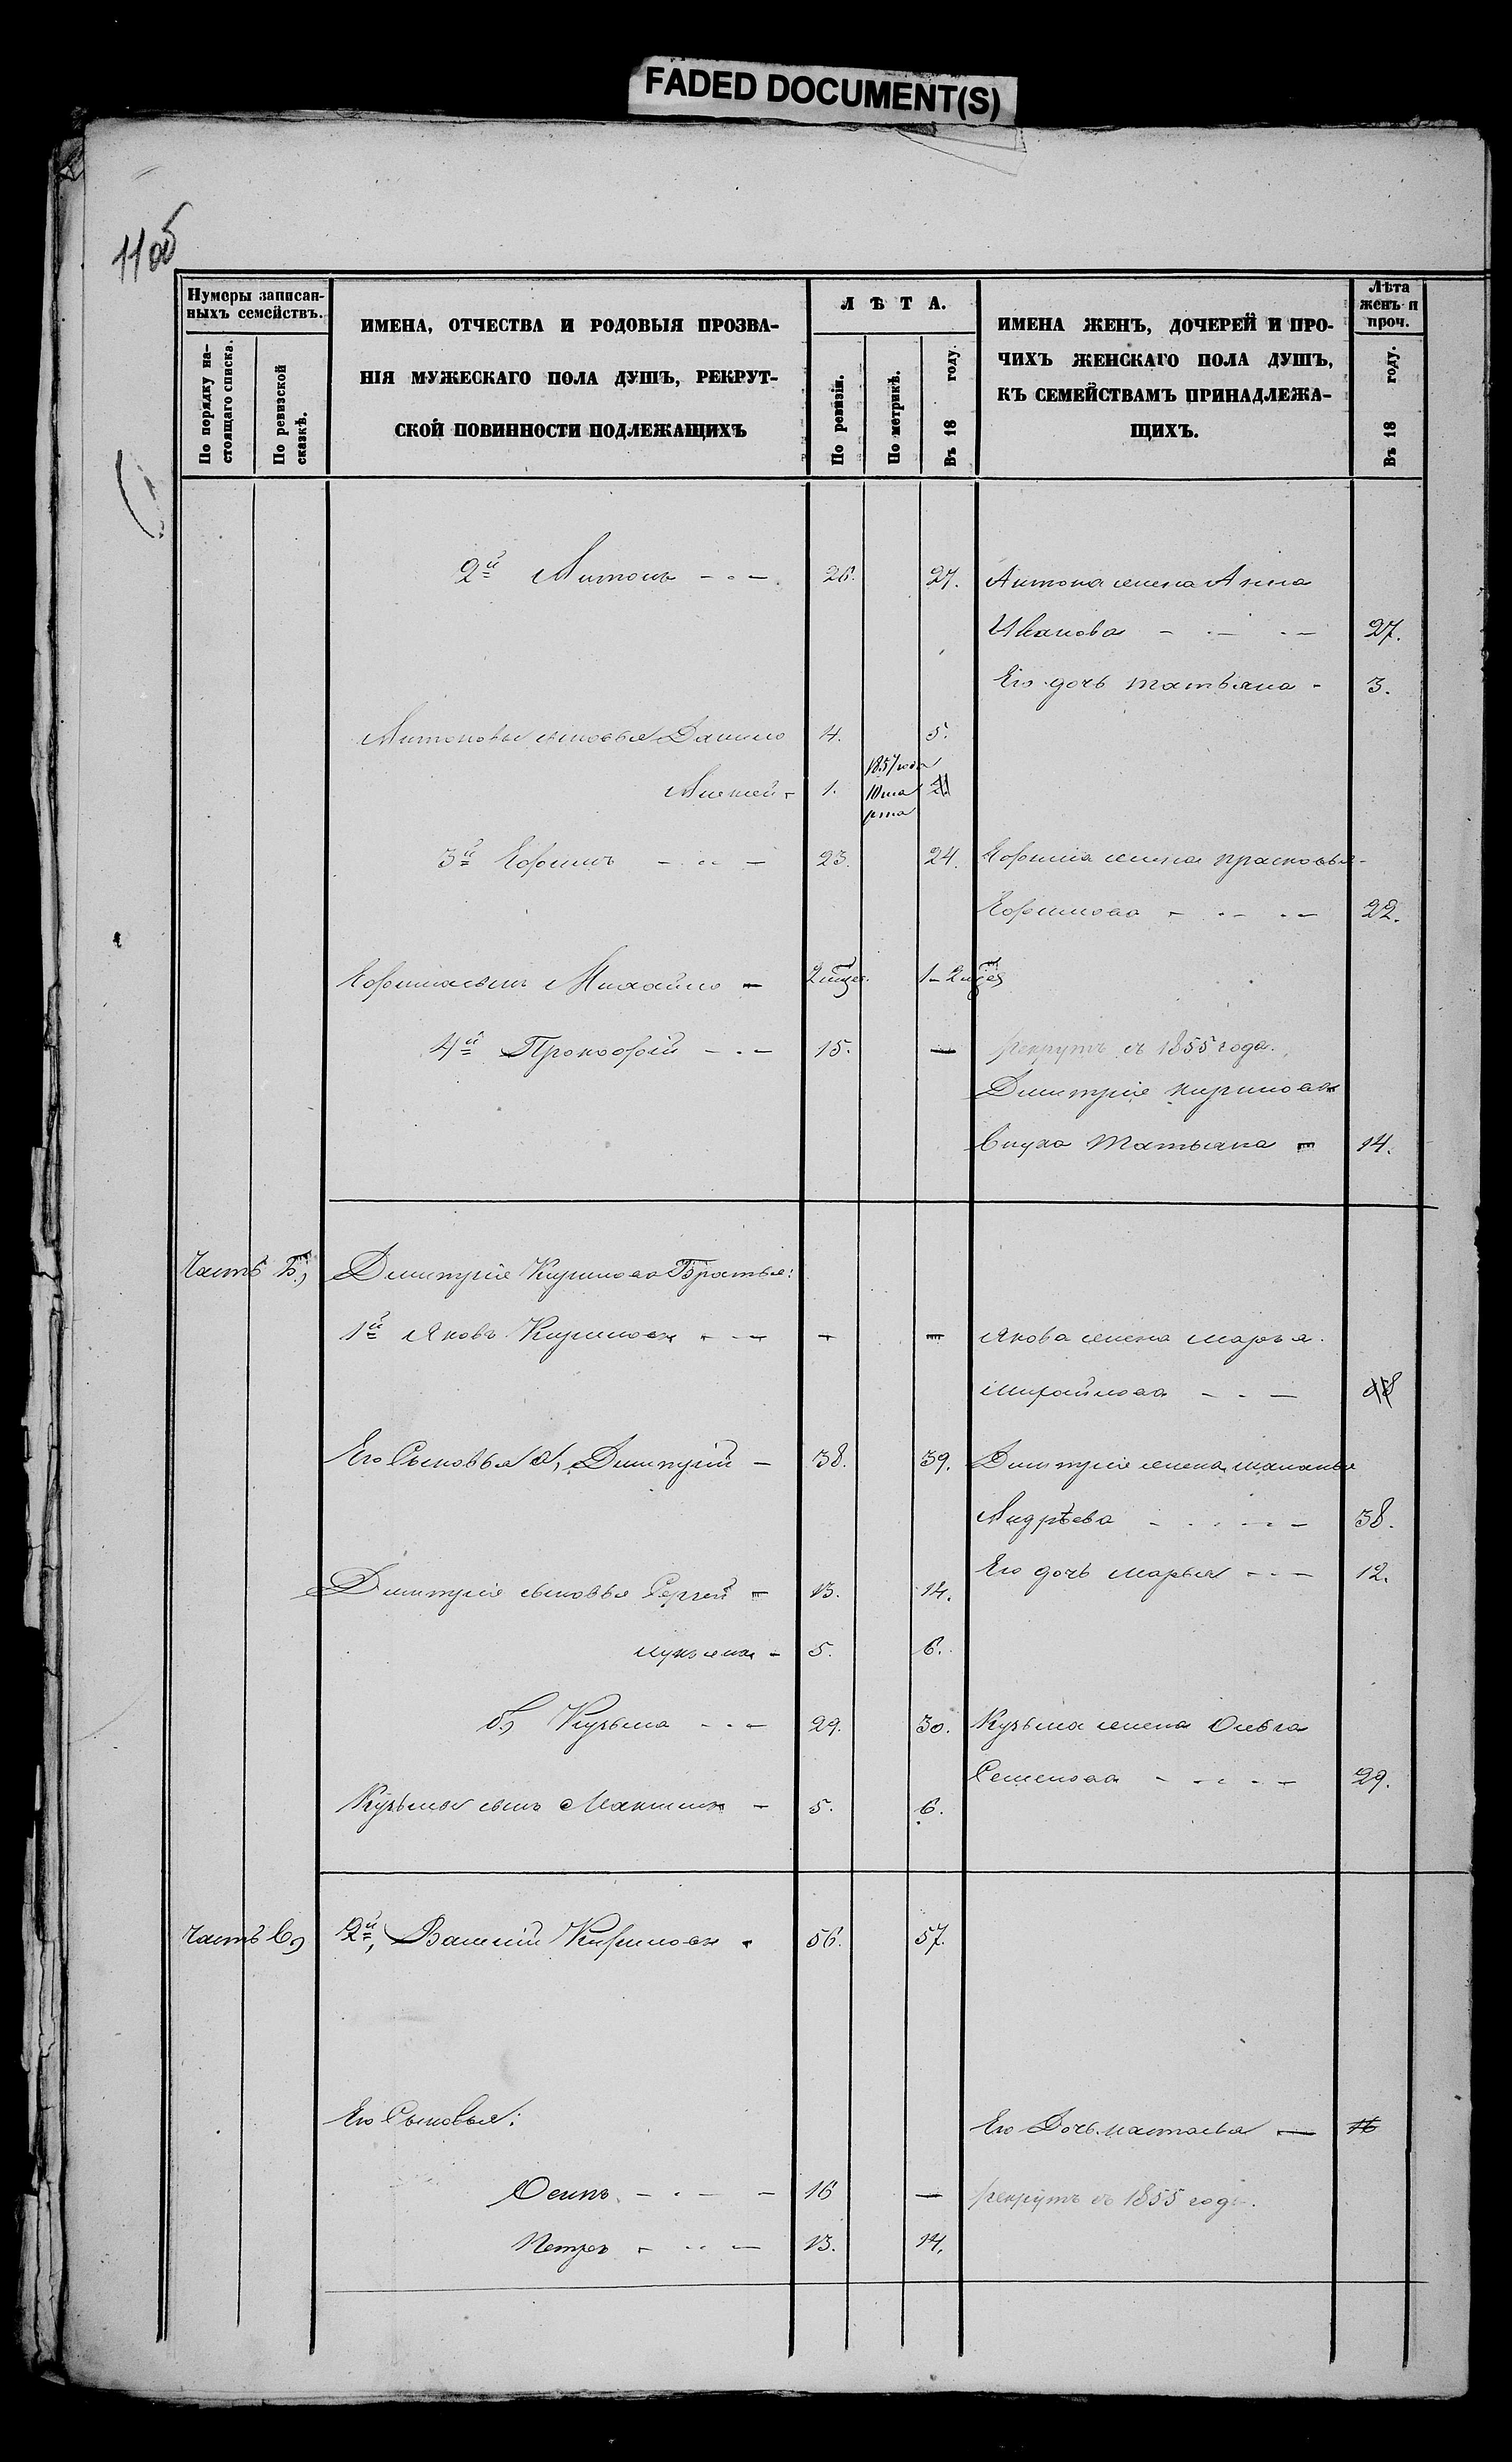 FADED DOCUMENT(S)
11об
Нумеры записан-
ныхъ семействъ.
По порядку на-
стоящаго списка.
По ревизской
сказкѣ.
ИМЕНА, ОТЧЕСТВА И РОДОВЫЯ ПРОЗВА-
НІЯ МУЖЕСКАГО ПОЛА ДУШЪ, РЕКРУТ-
СКОЙ ПОВИННОСТИ ПОДЛЕЖАЩИХЪ
ЛѢТА.
По ревизіи.
По метрикѣ.
Въ 18 году.
ИМЕНА ЖЕНЪ, ДОЧЕРЕЙ И ПРО-
ЧИХЪ ЖЕНСКАГО ПОЛА ДУШЪ,
КЪ СЕМЕЙСТВАМЪ ПРИНАДЛЕЖА-
ЩИХЪ.
Лѣта
женъ и
проч.
Въ 18 году.
2й Антонъ 26. 27. Антона жена Анна
Иванова 27.
Его дочь Татьяна 3.
Антоновы сыновья Данило 4. 5.
Алексей 1. 1857 года 10 ма рта 2.
3й Ефимъ 23. 24. Ефима жена Прасковья
Ефимова 22.
Ефима сынъ Михайло 2 мѣс. 1-2 мѣс
4й Прокофій 15. — рекрутъ съ 1855 года.
Дмитрія Кирилова
Снуха Татьяна 14.
Часть Б, Дмитрія Кирилова Братья:
1й Яковъ Кириловъ — — Якова жена Марья
Михайлова 48
Его Сыновья а, Дмитрій 38. 39. Дмитрія жена Маланья
Андрѣева 38.
Его дочь Марья 12.
Дмитрія сыновья Сергей 13. 14.
Лукьянъ 5. 6.
б, Кузьма 29. 30. Кузьма жена Ольга
Семенова 29.
Кузьмы сынъ Максимъ 5. 6.
Часть В, 2й, Василій Кириловъ 56. 57.
Его Сыновья: Его Дочь Настасья 16
Осипъ 16 — рекрутъ съ 1855 года.
Петръ 13. 14.